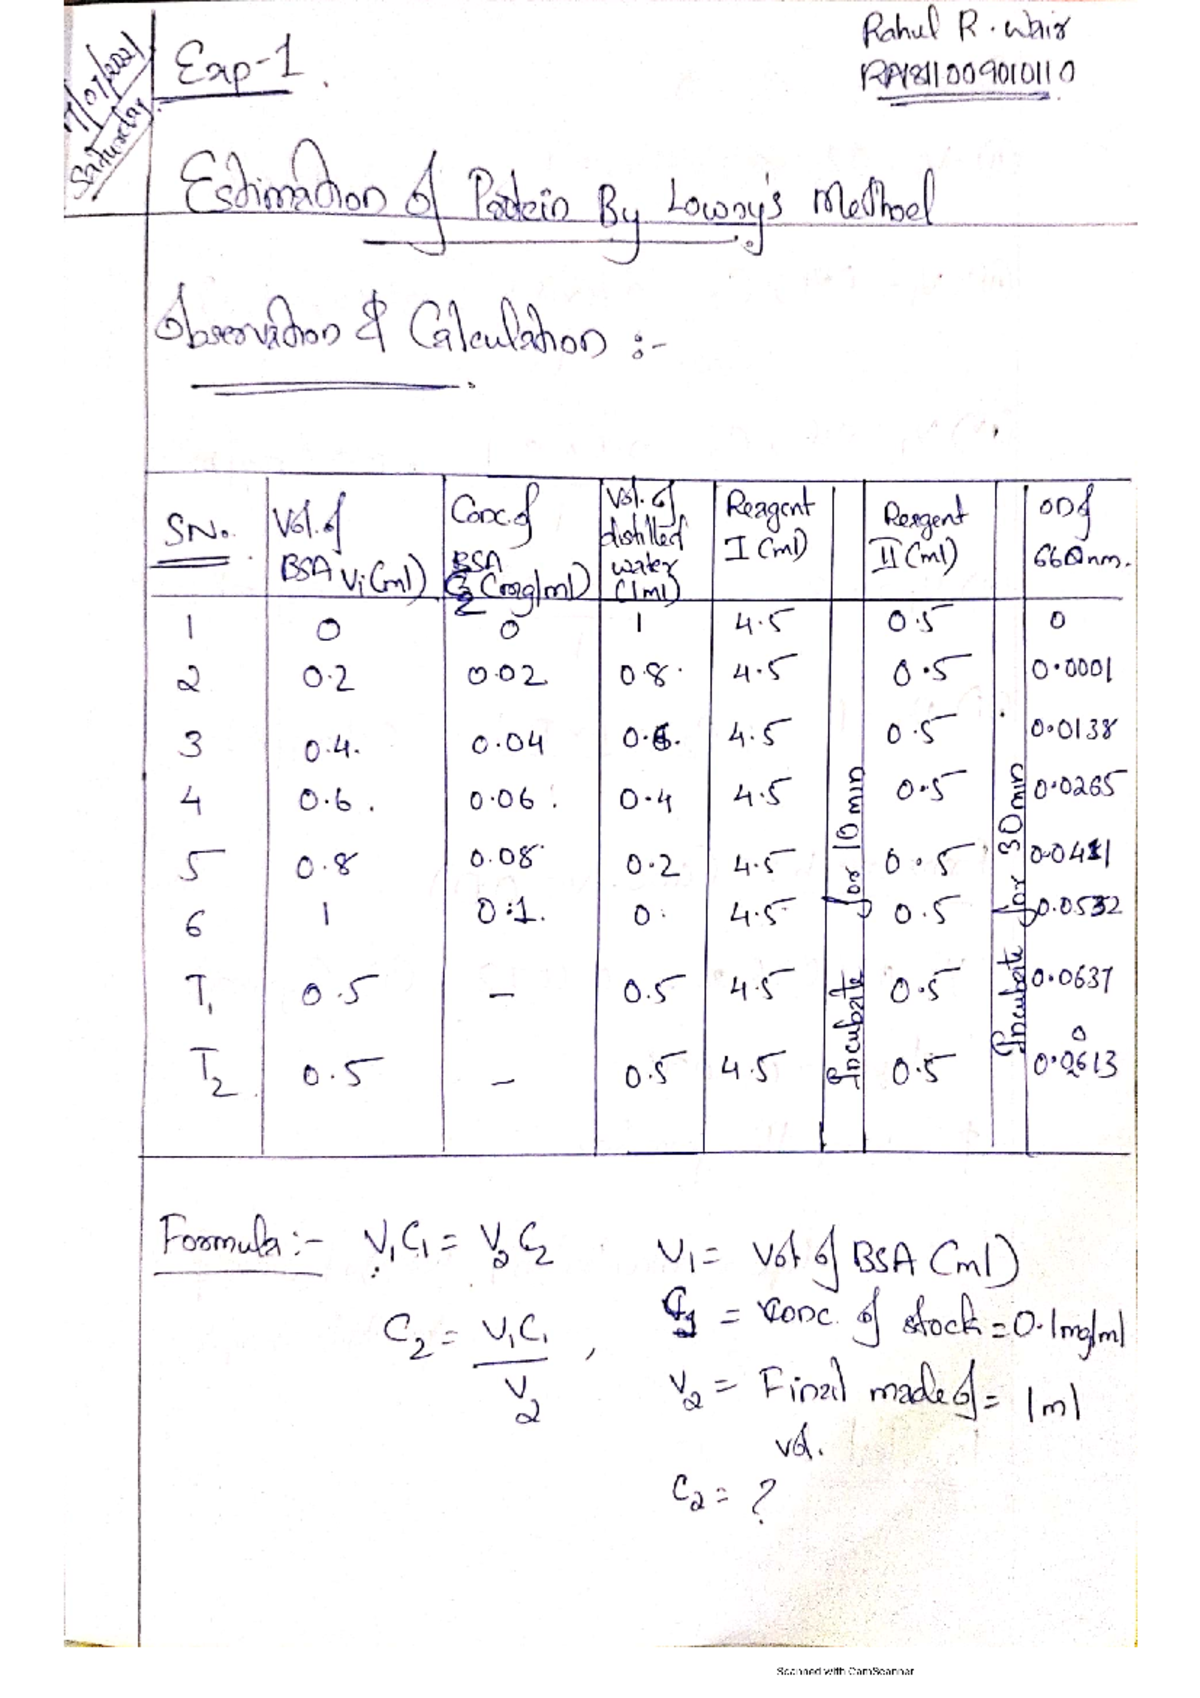 /07/2021
Saturday
Exp-1.
Rahul R. Wair
RA1811009010110
Estimation of Protein By Lowry's Method
Observation & Calculation :-
SNo. | Vol. of BSA V1 (ml) | Conc. of BSA C2 (mg/ml) | Vol. of distilled water (1ml) | Reagent I (ml) | | Reagent II (ml) | | OD of 660nm.
1 0 0 1 4.5 0.5 0
2 0.2 0.02 0.8 4.5 0.5 0.0001
3 0.4 0.04 0.6 4.5 0.5 0.0138
4 0.6 0.06 0.4 4.5 0.5 0.0265
5 0.8 0.08 0.2 4.5 0.5 0.0411
6 1 0.1 0 4.5 0.5 0.0532
T1 0.5 – 0.5 4.5 0.5 0.0637
T2 0.5 – 0.5 4.5 0.5 0.0613
Incubate for 10 min
Incubate for 30 min
Formula :- V1C1 = V2C2
C2 = V1C1 / V2 ,
V1 = Vol of BSA (ml)
C1 = Conc. of stock = 0.1mg/ml
V2 = Final made of = 1ml
vol.
C2 = ?
Scanned with CamScanner